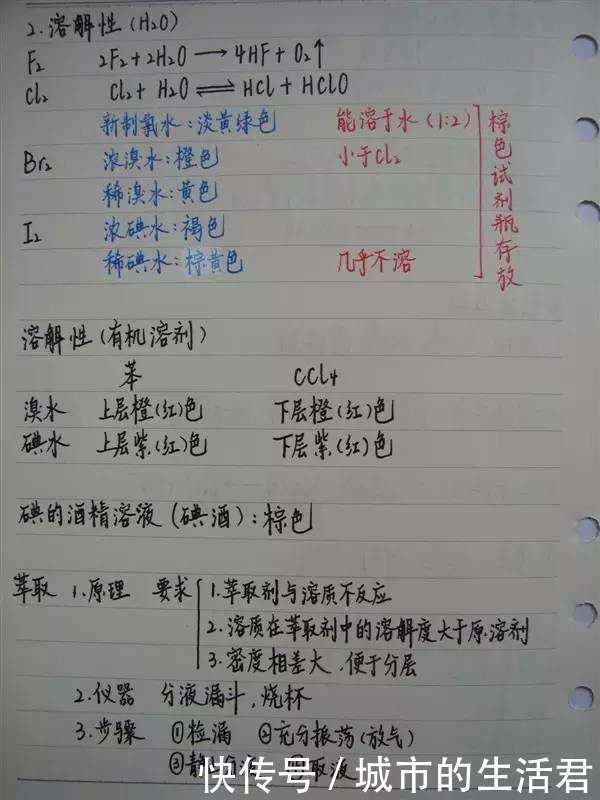 2.溶解性(H₂O)
F₂ 2F₂+2H₂O→4HF+O₂↑
Cl₂ Cl₂+H₂O⇌HCl+HClO
新制氯水:淡黄绿色 能溶于水(1:2)
Br₂ 浓溴水:橙色 小于Cl₂
稀溴水:黄色
I₂ 浓碘水:褐色
稀碘水:棕黄色 几乎不溶
棕色试剂瓶存放
溶解性(有机溶剂)
苯 CCl₄
溴水 上层橙(红)色 下层橙(红)色
碘水 上层紫(红)色 下层紫(红)色
碘的酒精溶液(碘酒):棕色
萃取 1.原理 要求 1.萃取剂与溶质不反应
2.溶质在萃取剂中的溶解度大于原溶剂
3.密度相差大,便于分层
2.仪器 分液漏斗,烧杯
3.步骤 ①检漏 ②充分振荡(放气)
③静
快传号/城市的生活君